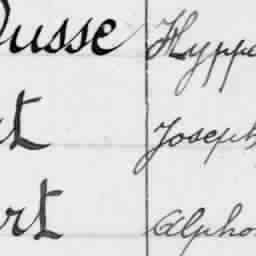 Dusse Hyppo
t Joseph
rt Alpho